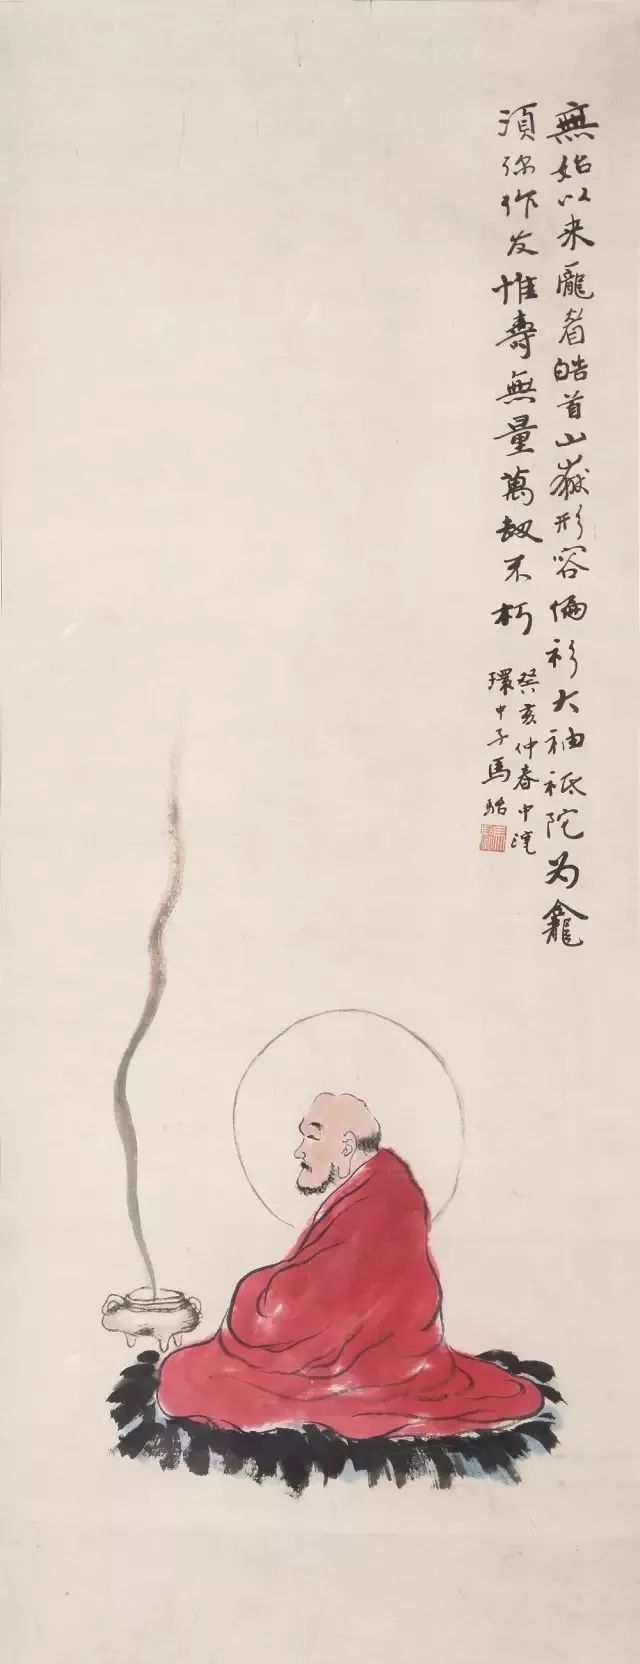 無始以来龎眉皓首山嶽形容徧衫大袖祇陀为龕
須弥作友惟壽無量萬劫不朽
癸亥仲春中浣
環中子馬駘